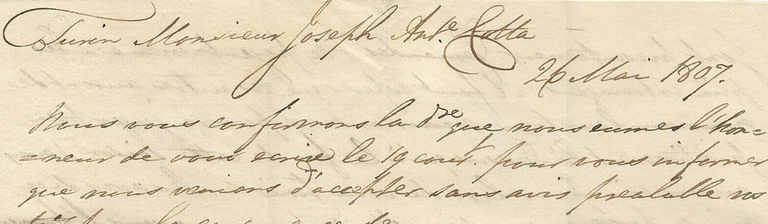 Turin Monsieur Joseph Ant.e Cotta
26 Mai 1807.
Nous vous confirmons la d.re que nous eumes l'hon=
=neur de vous ecrire le 19 cour.t pour vous informer
que nous venions d'accepter sans avis prealable vs